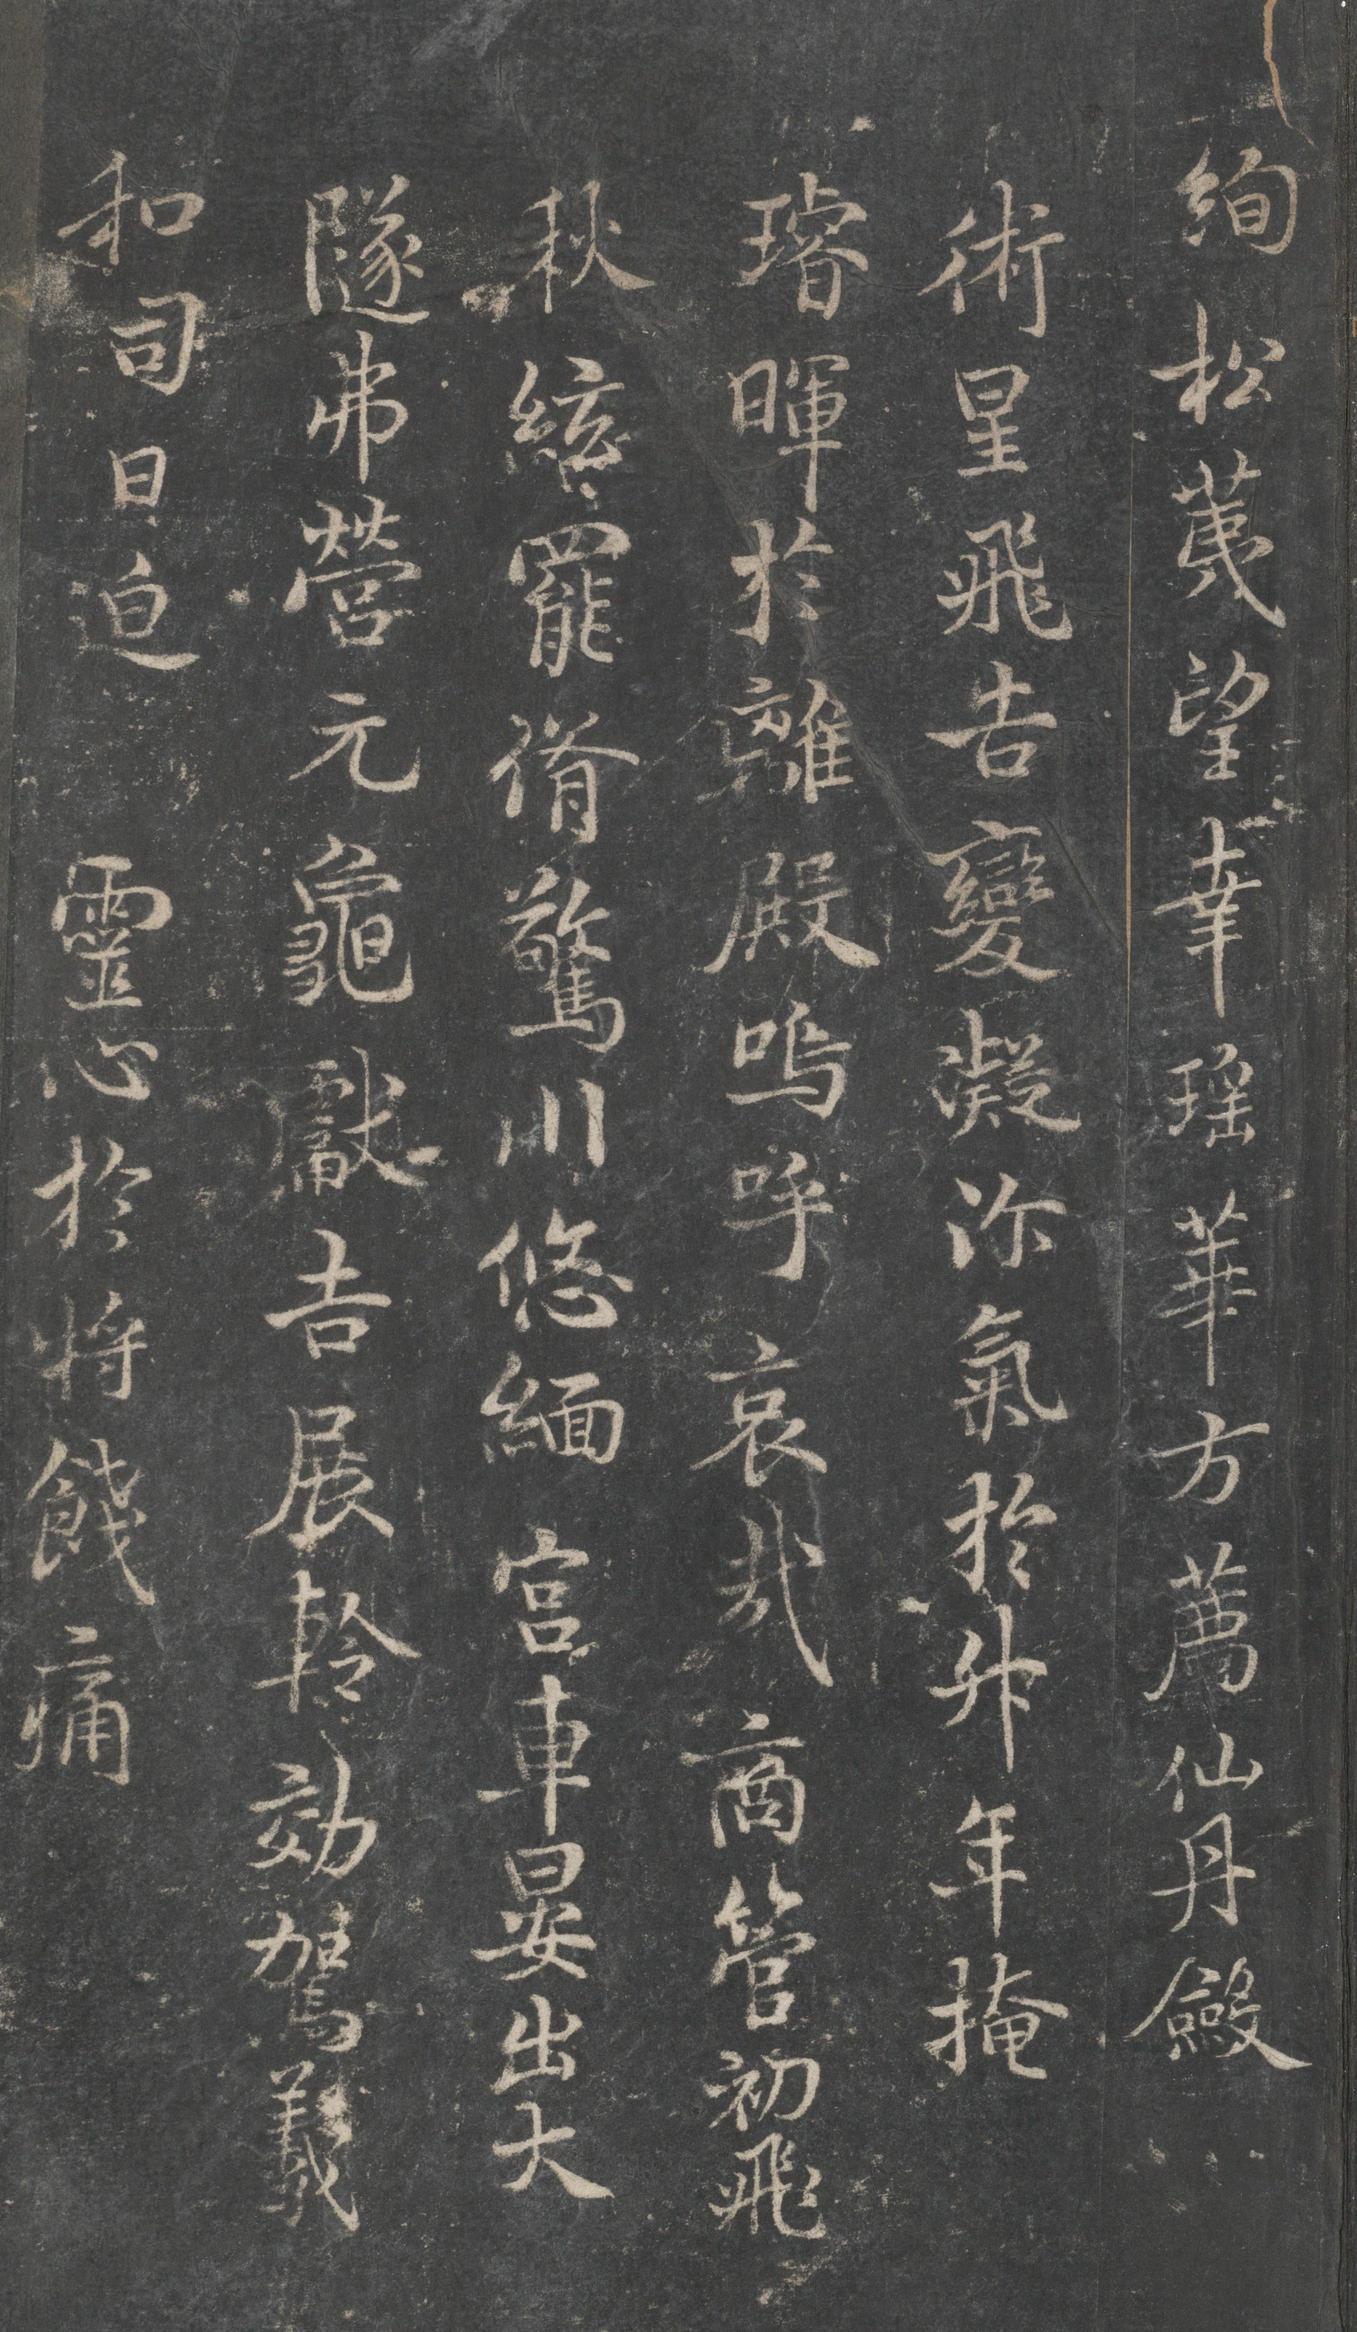 絢松荑望幸瑶華方薦仙丹斂
術星飛告變凝沴氣於升年掩
璿暉於離殿嗚呼哀哉商管初飛
秋絃罷脩驚川悠緬宮車晏出大
隧弗營元龜獻吉展軨効駕羲
和司日迫靈心於將餞痛